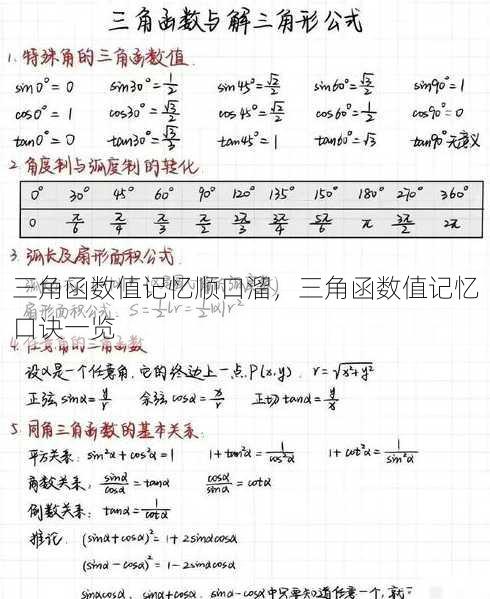 三角函数与解三角形公式
1. 特殊角的三角函数值.
sin0°=0 sin30°=1/2 sin45°=√2/2 sin60°=√3/2 sin90°=1
cos0°=1 cos30°=√3/2 cos45°=√2/2 cos60°=1/2 cos90°=0
tan0°=0 tan30°=√3/3 tan45°=1 tan60°=√3 tan90°无意义
2. 角度制与弧度制的转化
0° 30° 45° 60° 90° 120° 135° 150° 180° 270° 360°
0 π/6 π/4 π/3 π/2 2π/3 3π/4 5π/6 π 3π/2 2π
3. 弧长及扇形面积公式
三角函数值记忆顺口溜，三角函数值记忆
扇形面积公式: S=1/2lr=1/2|α|r²
口诀一览
4. 任意角的三角函数
设α是一个任意角,它的终边上一点P(x,y) r=√x²+y²
正弦sinα=y/r 余弦cosα=x/r 正切tanα=y/x
5. 同角三角函数的基本关系:
平方关系: sin²α+cos²α=1 1+tan²α=1/cos²α 1+cot²α=1/sin²α
商数关系: sinα/cosα=tanα cosα/sinα=cotα
倒数关系: tanα=1/cotα
推论: (sinα+cosα)²=1+2sinαcosα
(sinα-cosα)²=1-2sinαcosα
sinαcosα, sinα+cosα, sinα-cosα中只要知道任意一个,就可